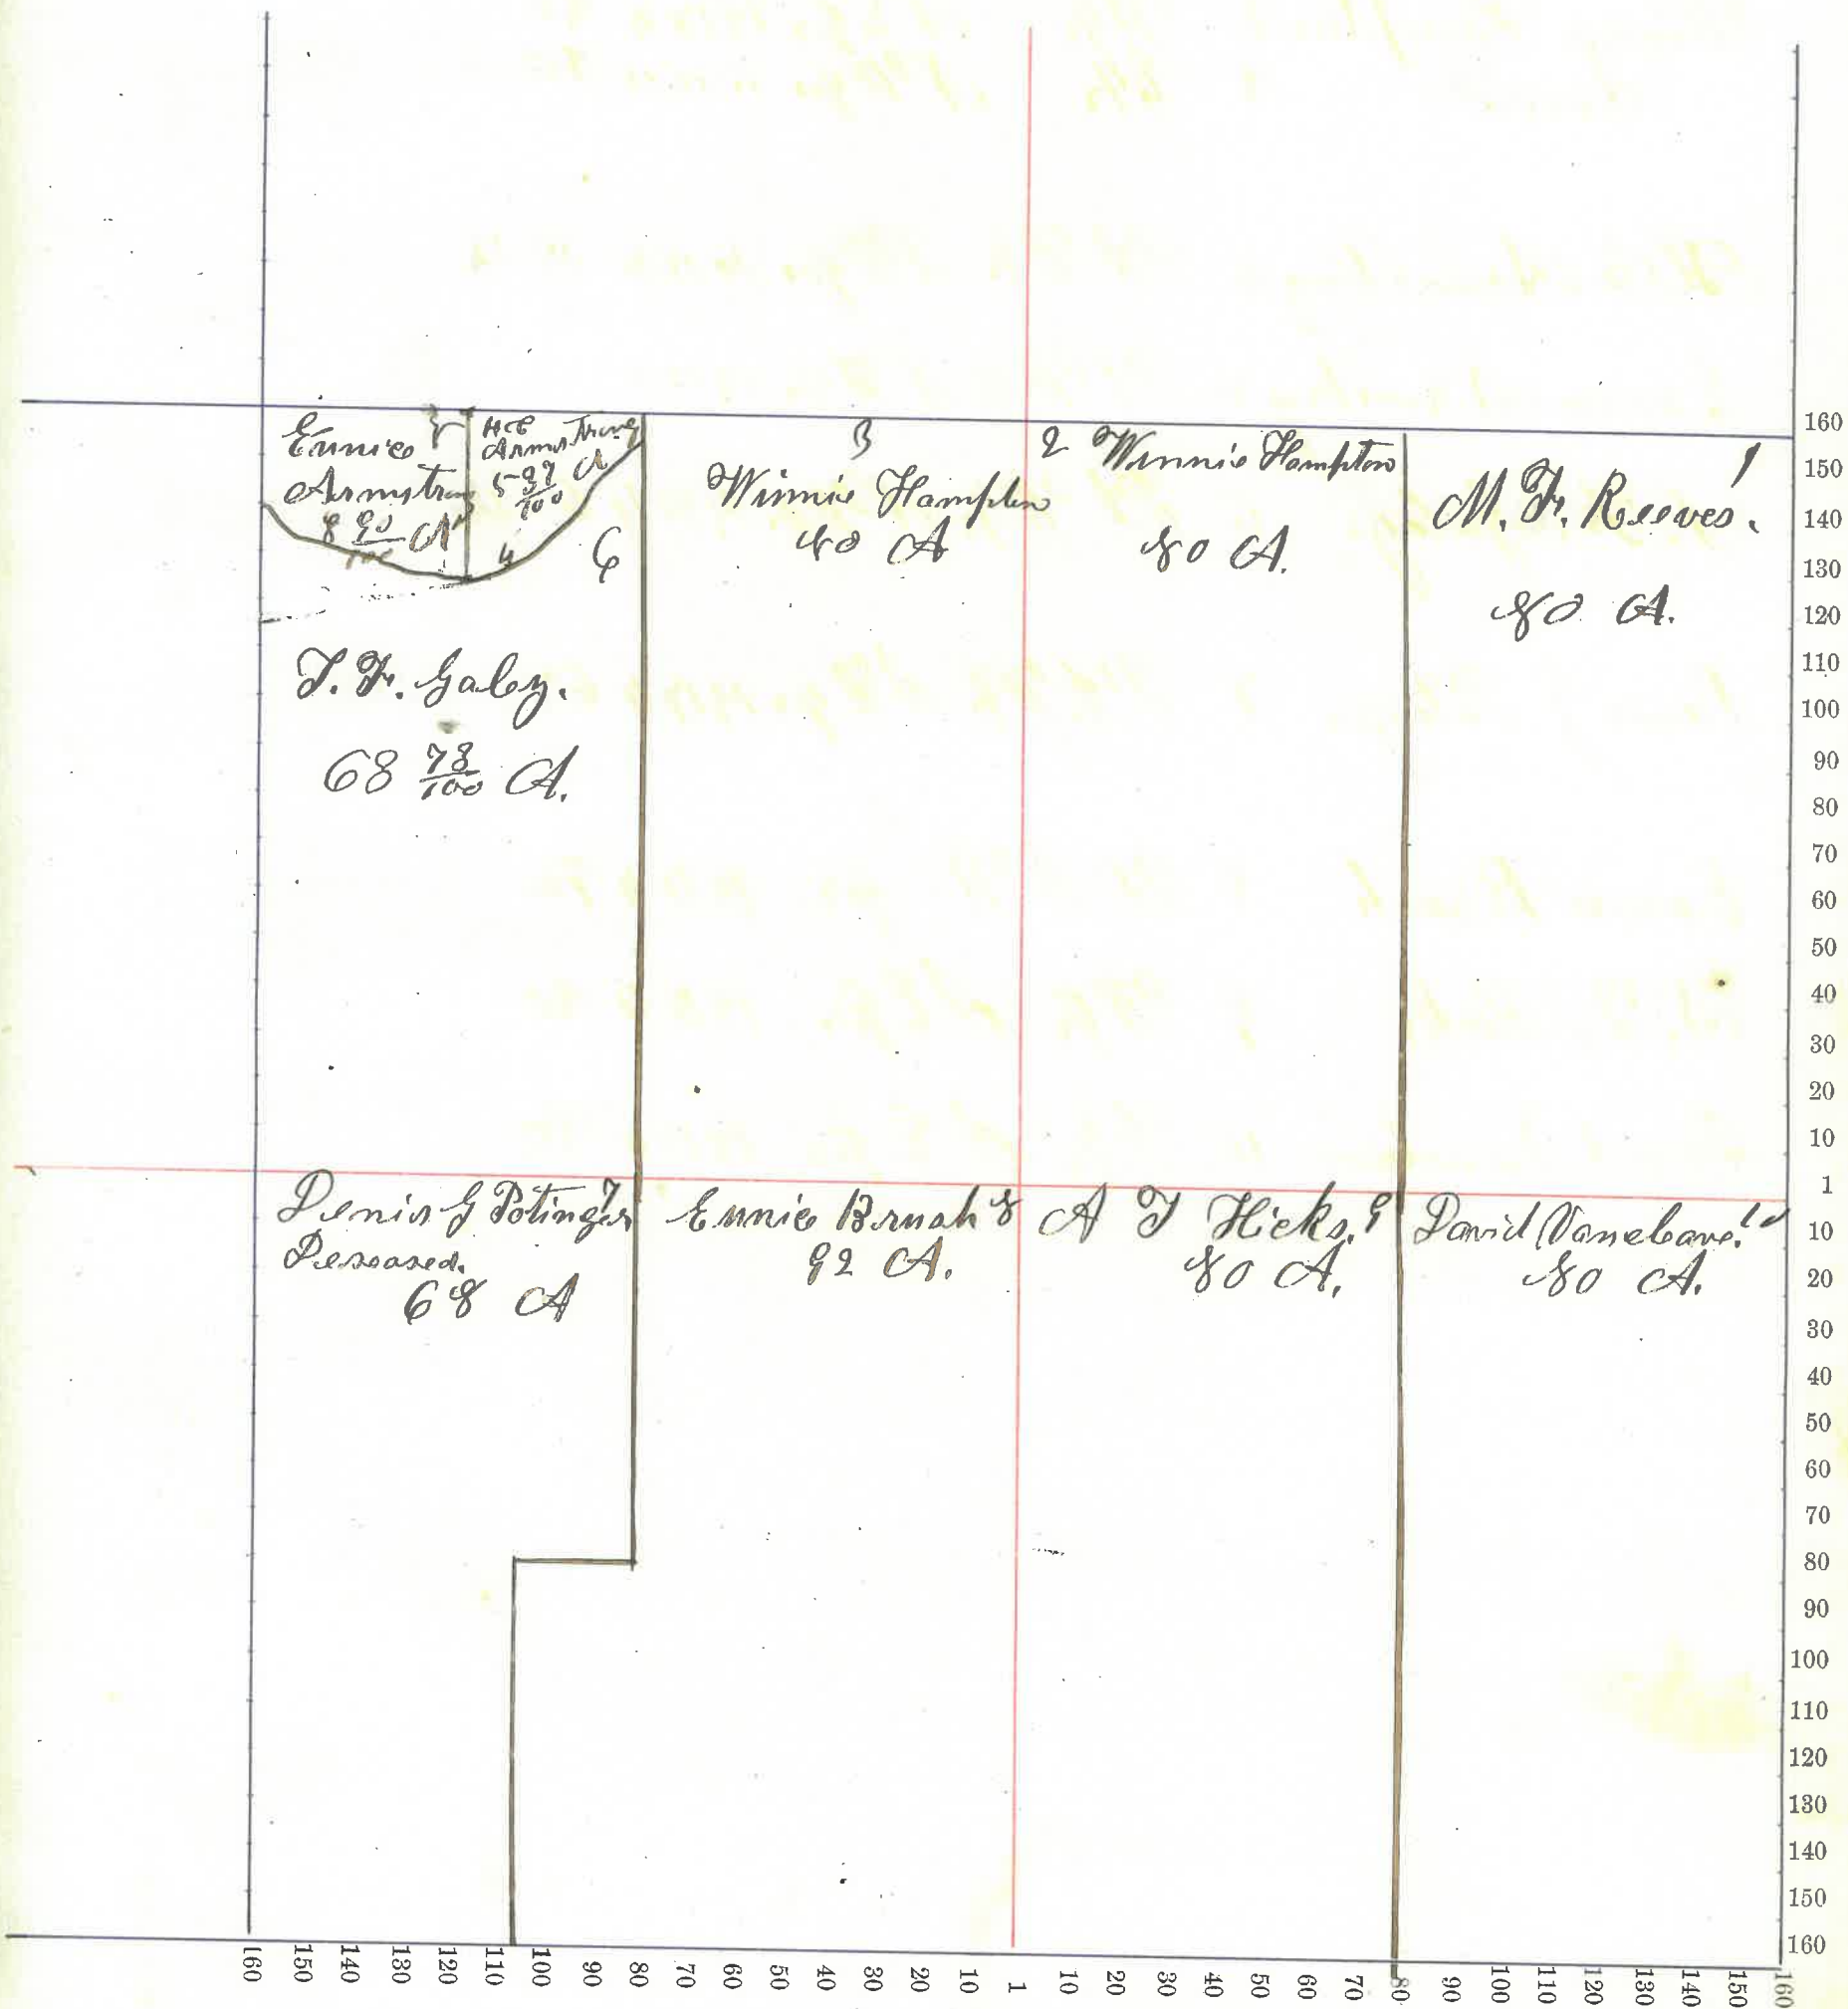 Ennice
Armstron
8 90/100 A
5
H C
Armstrong
5 37/100 A
4
6
3
Winnie Hampton
80 A
2 Winnie Hampton
80 A.
1
M. F. Reeves.
80 A.
T. F. Galey.
68 73/100 A.
Denis G Potinger 7
Deseased.
68 A
Ennie Brush 8
92 A.
A T Hicks. 9
80 A.
David Vancleave. 10
80 A.
160
150
140
130
120
110
100
90
80
70
60
50
40
30
20
10
1
10
20
30
40
50
60
70
80
90
100
110
120
130
140
150
160
160 150 140 130 120 110 100 90 80 70 60 50 40 30 20 10 1 10 20 30 40 50 60 70 80 90 100 110 120 130 140 150 160